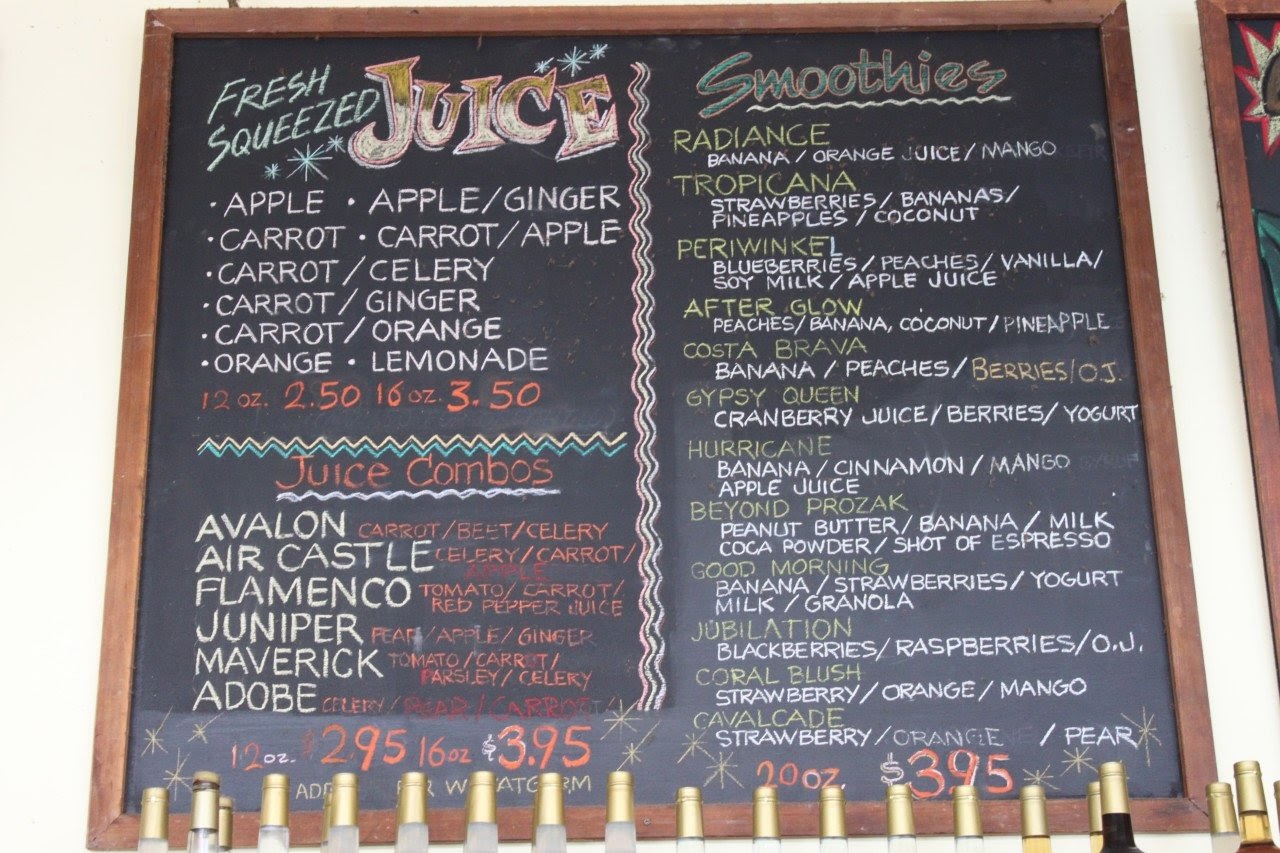 FRESH SQUEEZED JUICE
· APPLE · APPLE/GINGER
· CARROT · CARROT/APPLE
· CARROT/CELERY
· CARROT/GINGER
· CARROT/ORANGE
· ORANGE · LEMONADE
12 OZ. 2.50 16 OZ. 3.50
Juice Combos
AVALON CARROT/BEET/CELERY
AIR CASTLE CELERY/CARROT/
APPLE
FLAMENCO TOMATO/CARROT/
RED PEPPER JUICE
JUNIPER PEAR/APPLE/GINGER
MAVERICK TOMATO/CARROT/
PARSLEY/CELERY
ADOBE CELERY/PEAR/CARROT
12 OZ. $2.95 16 OZ $3.95
Smoothies
RADIANCE
BANANA/ORANGE JUICE/MANGO
TROPICANA
STRAWBERRIES/BANANAS/
PINEAPPLES/COCONUT
PERIWINKEL
BLUEBERRIES/PEACHES/VANILLA/
SOY MILK/APPLE JUICE
AFTER GLOW
PEACHES/BANANA, COCONUT/PINEAPPLE
COSTA BRAVA
BANANA/PEACHES/BERRIES/O.J.
GYPSY QUEEN
CRANBERRY JUICE/BERRIES/YOGURT
HURRICANE
BANANA/CINNAMON/MANGO
APPLE JUICE
BEYOND PROZAK
PEANUT BUTTER/BANANA/MILK
COCA POWDER/SHOT OF ESPRESSO
GOOD MORNING
BANANA/STRAWBERRIES/YOGURT
MILK/GRANOLA
JUBILATION
BLACKBERRIES/RASPBERRIES/O.J.
CORAL BLUSH
STRAWBERRY/ORANGE/MANGO
CAVALCADE
STRAWBERRY/ORANGE/PEAR
20 OZ. $3.95